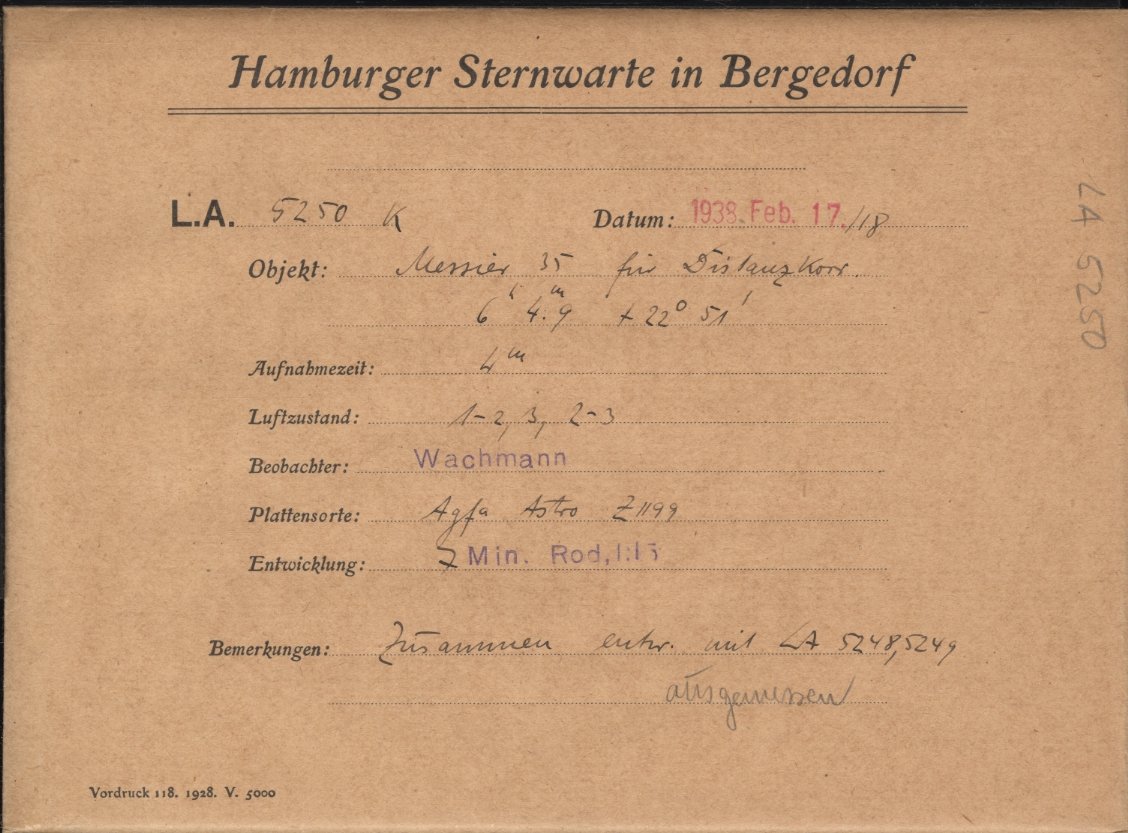 Hamburger Sternwarte in Bergedorf
L.A. 5250 K Datum: 1938 Feb. 17./18
Objekt: Messier 35 für Distanzkorr.
6ʰ 4.ᵐ9 +22° 51'
Aufnahmezeit: 4ᵐ
Luftzustand: 1-2, 3, 2-3
Beobachter: Wachmann
Plattensorte: Agfa Astro Z1199
Entwicklung: 7 Min. Rod, 1:15
Bemerkungen: Zusammen entw. mit LA 5248, 5249
ausgemessen
Vordruck 118. 1928. V. 5000
LA 5250